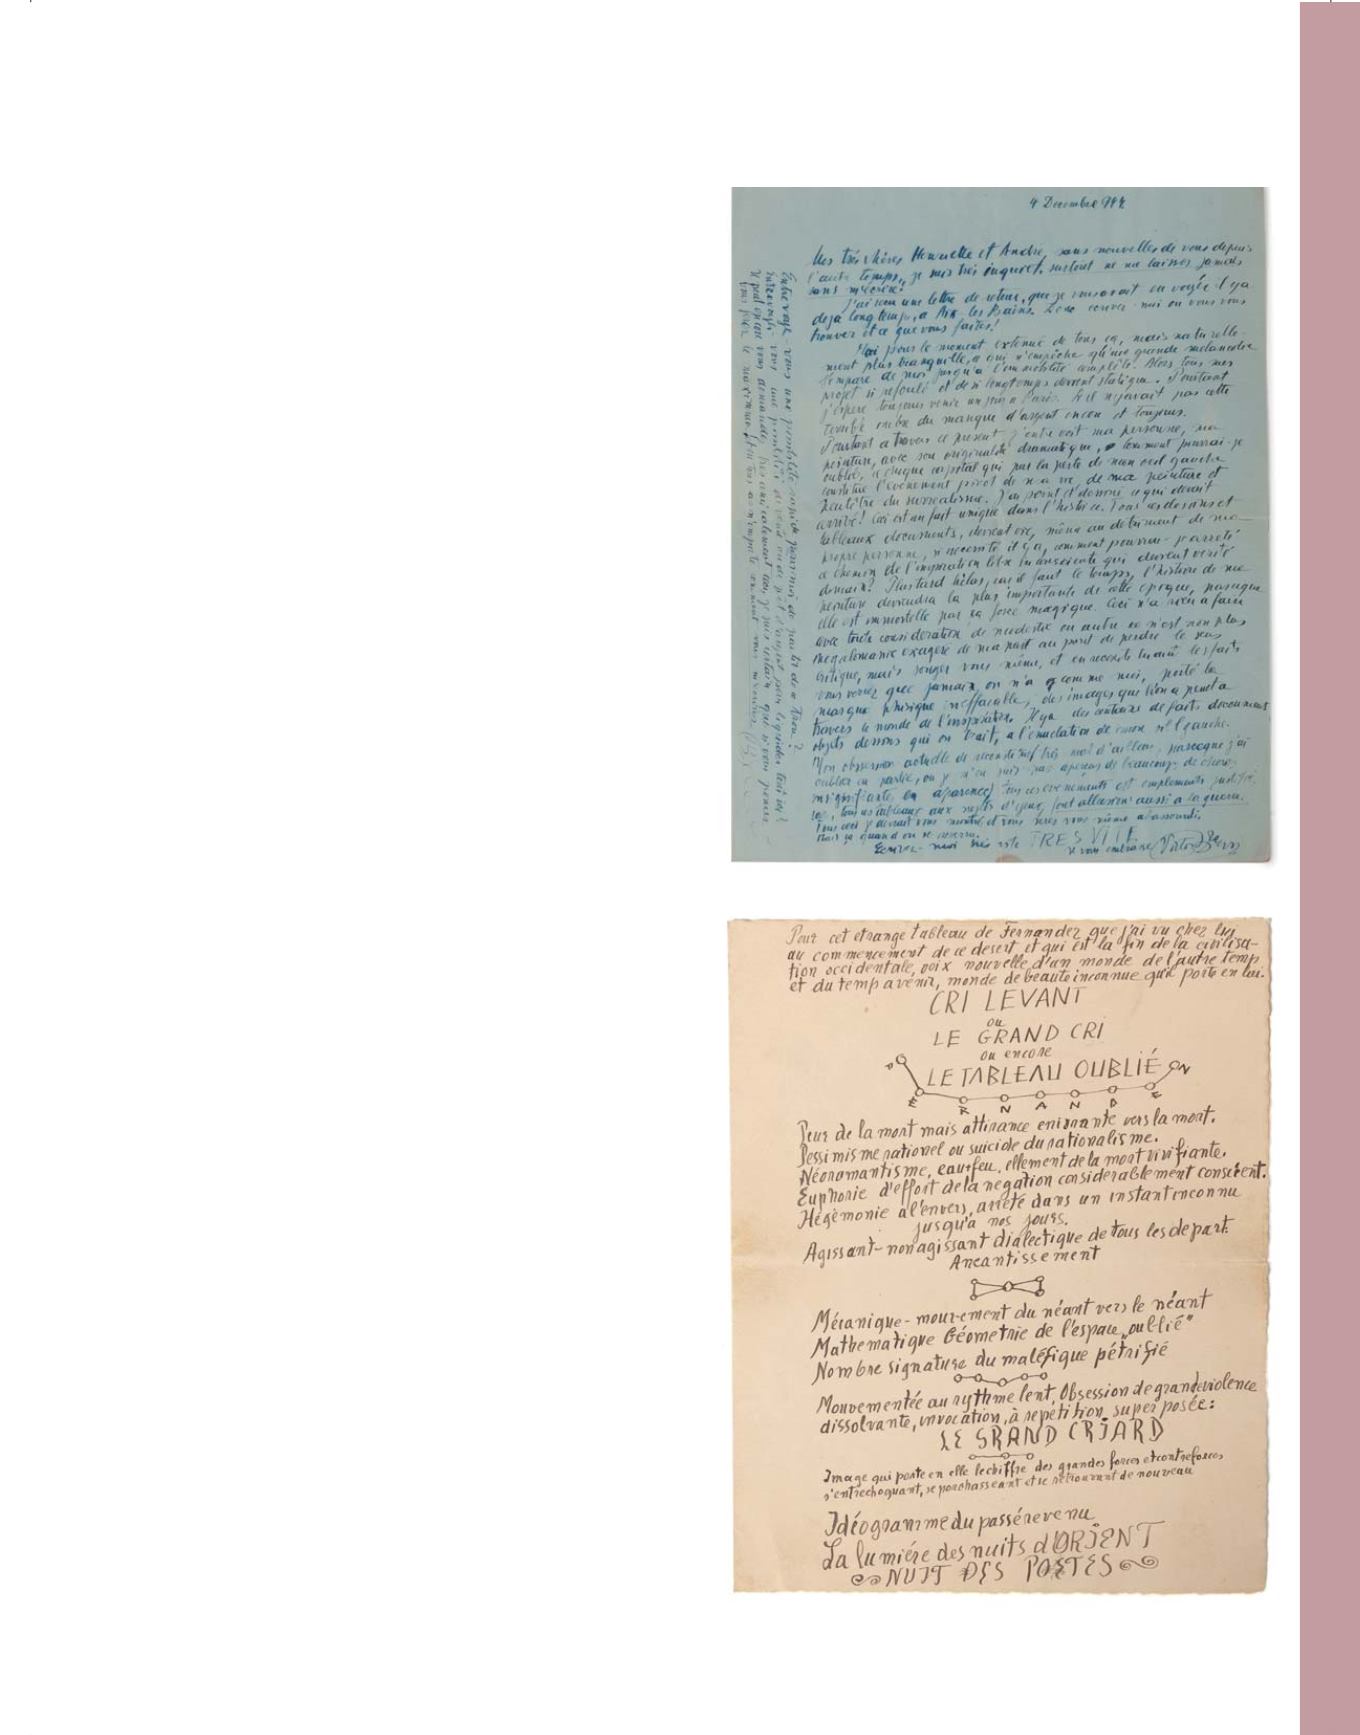 4 Decembre 944
Mes très chères Henriette et Andre, sans nouvelles de vous depuis
je suis très inquiet, surtout ne me laissez jamais
sans m'ecrire!
J'ai reçu une lettre de retour, que je vous avait en voyée il y a
deja long temps, a Aix les Bains. Donc ou vous vous
trouver et ce que vous faites!
Moi pour le moment extenué de tous ça, mais naturelle-
ment plus tranquille, qu'une grande melancolie
s'empare de moi jusqu'a l'immobilité complète. Alors tous mes
projet si refoulé et de si longtemps devient statique. Pourtant
j'espere toujours venir un jour a Paris. S'il n'y avait pas cette
terrible ombre du manque d'argent encore et toujours.
Pourtant a travers ce present j'entrevoit ma personne, ma
peinture, avec son originalité dramatique, Comment pourrai-je
oublié, qui par la perte de mon oeil gauche
constitue l'evenement pivot de ma vie, de ma peinture et
peut être du surrealisme. J'ai peint et dessiné ce qui devait
arrivé! Ceci est un fait unique dans l'histoire. Tous ces dessins et
tableaux documents, même au detriment de ma
propre personne, si necessité il y a, comment pourrai-je arreté
ce chemin de l'inspiration qui devient verité
demain? Plus tard hélas, car il faut le temps, l'histoire de ma
peinture deviendra la plus importante de cette epoque, parceque
elle est immortelle par sa force magique. Ceci n'a rien a faire
avec toute consideration de modestie ou autre ce n'est non plus
megalomanie exageré de ma part au point de perdre le sens
critique, mais songer vous même, et en les faits
vous verrez que jamais on n'a comme moi, porté la
marque phisique ineffaçable, des images que l'on a peint a
travers le monde de l'inspiration. Il y a des centaine de faits document
objets dessins qui on trait, a l'enucleation de mon oeil gauche.
Mon obsession actuelle d'ailleurs, parceque j'ai
oublier en partie, ou je n'en suis pas aperçus de beaucoup de choses
insignifiante en aparence, tous ces evenements est
tous ces tableaux aux sujets d'yeux, font allusion aussi a la guerre.
Tous ceci je devrait vous montré et vous serez vous même abassourdi.
Mais ça quand on se reverra.
Ecrivez-moi très vite TRES VITE
je vous embrasse Victor Brauner
Entrevoyez-vous une possibilité rapide pour moi de partir de ce trou?
Entrevoyez-vous une possibilité de vente ou de prêt d'argent pour liquider tout ici?
pour le maximum
Pour cet etrange tableau de Fernandez que j'ai vu chez lui
au commencement de ce desert, et qui est la fin de la civilisa-
tion occidentale, voix nouvelle d'un monde de l'autre temp
et du temp avenir, monde de beauté inconnue qu'il porte en lui.
CRI LEVANT
ou
LE GRAND CRI
ou encore
LE TABLEAU OUBLIÉ
FERNANDEZ
Peur de la mort mais attirance enivrante vers la mort.
Pessimisme rationel ou suicide du rationalisme.
Néoromantisme, eau+feu, ellement de la mort vivifiante.
Euphorie d'effort de la negation considerablement conscient.
Hégèmonie a l'envers, arrété dans un instant inconnu
jusqu'a nos jours.
Agissant-nonagissant dialectique de tous les depart.
Aneantissement
Mécanique-mouvement du néant vers le néant
Mathematique Géometrie de l'espace „oublié"
Nombre signature du maléfique pétrifié
Mouvementée au rythme lent, Obsession de grande violence
dissolvante, invocation, à repétition superposée:
LE GRAND CRIARD
Image qui porte en elle le chiffre des grandes forces et contreforces
s'entrechoquant, se porchasseant et se retrouvant de nouveau
Idéogramme du passé revenu
La lumiére des nuits d'ORIENT
NUIT DES POETES